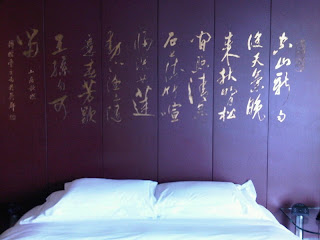 空山新雨
後天氣晚
来秋明月松
間照清泉
石上流竹喧
歸浣女蓮
動下漁舟隨
意春芳歇
王孫自可
留
山居秋暝